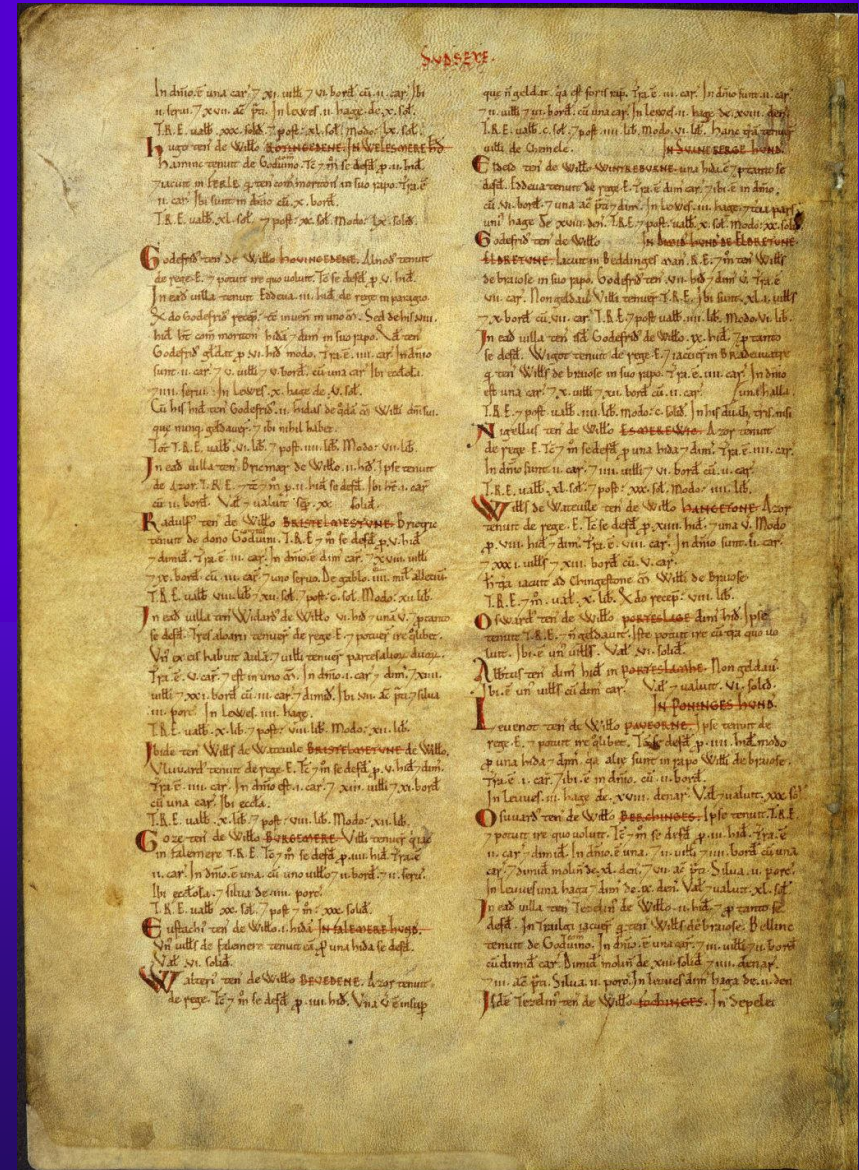 SUDSEXE.
In dn̄io . ē una car̄ . 7 xi . uiłłi 7 vi . bord̄ cū . ii . car̄ . Ibi
ii . serui . 7 xvii . ac̄ p̃ti . In Lewes . ii . hagę . de . x . soł .
T.R.E. uałb̄ . xxx . solid̄ . 7 post : xl . soł . Modo : lx . soł .
Hugo ten̄ de Wiłło ROTINGEDENE. IN WELESMERE HD̄
Haminc tenuit de Goduino . Tc̄ 7 m̊ se defd̄ . p . ii . hid̄ .
7 iacuit in FERLE q̨ ten̄ com̄ moriton̄ in suo rapo . Tr̃a . ē
ii . car̄ . Ibi sunt in dn̄io cū . x . bord̄ .
T.R.E. uałb̄ . xl . soł . 7 post : xx . soł . Modo : lx . solid̄ .
Godefrid' ten̄ de Wiłło HOVINGEDENE. Alnod tenuit
de rege . E . 7 potuit ire quo uoluit . Tc̄ se defd̄ . p . v . hid̄ .
In ead̄ uilla tenuit Eddeua . iii . hid̄ . de rege in paragio
Q̨do Godefrid' recep̄ . 
hid̄ h̄t com̄ moriton̄ hidā 7 dim̄ in suo rapo .
Godefrid' gldat p . vi . hid̄ modo . Tr̃a . ē . iii . car̄ . In dn̄io
sunt . ii . car̄ . 7 v . uiłłi 7 v . bord̄ . cū una car̄ . Ibi ęccłola .
7 iiii . serui . In Lewes . x . hagę de . v . soł .
Cū his hid̄ ten̄ Godefrid' . ii . hidas de
quę nunq̨ geldauer̄ . 7 ibi nihil habet .
Tot̄ T.R.E. uałb̄ . vi . lib̄ . 7 post : iiii . lib̄ . Modo : vii . lib̄ .
In ead̄ uilla ten̄ Bricmær de Wiłło . ii . hid̄ . Ipse tenuit
de Azor . T.R.E. 7 tc̄ 7 m̊ p . ii . hid̄ se defd̄ . Ibi h̄t . i . car̄
cū . ii . bord̄ . Vał 7 ualuit sēp̄ . xx . solid̄ .
Radulf' ten̄ de Wiłło BRISTELMESTUNE. Brictric
tenuit de dono Goduini . T.R.E. 7 m̊ se defd̄ . p . v . hid̄
7 dimid̄ . Tr̃a . ē . iii . car̄ . In dn̄io . ē dim̄ car̄ . 7 xviii . uiłłi
7 ix . bord̄ . cū . iii . car̄ . 7 uno seruo . De gablo . iiii . mił allecium .
T.R.E. uałb̄ . viii . lib̄ . 7 xii . soł . 7 post : c . soł . Modo : xii . lib̄ .
In ead̄ uilla ten̄ Widard' de Wiłło . vi . hid̄ 7 una V . 7 p tanto
se defd̄ . Tres aloarii tenuer̄ de rege . E . 7 potuer̄ ire q̨libet .
Vn̄ ex eis habuit aulā . 7 uiłłi tenuer̄ partes alior̨ duor̨ .
Tr̃a . ē . v . car̄ . 7 est in uno m̊ . In dn̄io . i . car̄ 7 dim̄ . 7 xiiii .
uiłłi 7 xxi . bord̄ cū . iii . car̄ . 7 dimid̄ . Ibi . vii . ac̄ p̃ti 7 silua
iii . porc̄ . In Lewes . iiii . hagę .
T.R.E. uałb̄ . x . lib̄ . 7 post : viii . lib̄ . Modo : xii . lib̄ .
Ibide ten̄ Wiłłs de Wateuile BRISTELMETUNE de Wiłło .
Vluuard tenuit de rege . E . Tc̄ 7 m̊ se defd̄ . p . v . hid̄ 7 dim̄ .
Tr̃a . ē . iiii . car̄ . In dn̄io est . i . car̄ . 7 xiii . uiłłi 7 xi . bord̄
cū una car̄ . Ibi ęccła .
T.R.E. uałb̄ . x . lib̄ . 7 post : viii . lib̄ . Modo : xii . lib̄ .
Goze ten̄ de Wiłło BURGEMERE. Villi tenuer̄ quę
in falemere T.R.E. Tc̄ 7 m̊ se defd̄ . p . iiii . hid̄ . Tr̃a ē
ii . car̄ . In dn̄io . ē una . cū uno uiłło 7 ii . bord̄ . 7 ii . seru̅ .
Ibi ęccłola . 7 silua de . iii . porc̄ .
T.R.E. uałb̄ . xx . soł . 7 post 7 m̊ : xxx . solid̄ .
Eustachi' ten̄ de Wiłło . i . hidā IN FALEMERE HUND.
Vn̄ uiłłs de falemere tenuit eā . p una hida se defd̄ .
Vał . vi . solid̄ .
Walteri' ten̄ de Wiłło BEVEDENE. Azor tenuit
de rege . Tc̄ 7 m̊ se defd̄ . p . iiii . hid̄ . Vna V ē insup
que n̄ geldat . q̨a est foris rap̄ . Tr̃a . ē . iii . car̄ . In dn̄io sunt . ii . car̄
7 ii . uiłłi 7 iii . bord̄ . cū una car̄ . In lewes . ii . hagę de . xxviii . den̄ .
T.R.E. uałb̄ . c . soł . 7 post : iiii . lib̄ . Modo . vi . lib̄ . Hanc tr̃a tenuer̄
uiłłi de Chemele . IN DVANEBERGE HUND.
Eldeid ten̄ de Wiłło WINTREBURNE. una hida . ē 7 p tanto se
defd̄ . Eddeua tenuit de rege . E . Tr̃a . ē dim̄ car̄ . 7 ibi . ē in dn̄io ,
cū . vi . bord̄ . 7 una ac̄ p̃ti 7 dim̄ . In lewes . iii . hagę . 7 tcia pars
uni' hagę de xviii . den̄ . T.R.E. 7 post : uałb̄ . x . soł . Modo : xx . solid̄ .
Godefrid' ten̄ de Wiłło ELDRETUNE.
ELDRETUNE. Iacuit in Beddinges man̄ . R . E . 7 m̊ ten̄ Wiłłs
de braiose in suo rapo . Godefrid' ten̄ . vii . hid̄ 7 dim̄ V . Tr̃a . ē
vii . car̄ . Non geldauit . Villi tenuer̄ T.R.E. Ibi sunt . xl . i . uiłłs
7 x . bord̄ cū . vii . car̄ . T.R.E. 7 post uałb̄ . iiii . lib̄ . Modo . vi . lib̄ .
In ead̄ uilla ten̄ isd̄ Godefrid' de Wiłło . ix . hid̄ . 7 p tanto
se defd̄ . Wigot tenuit de rege . E . 7 iacuit in Bradewatre
q̨ ten̄ Wiłłs de braiose in suo rapo . Tr̃a . ē . iii . car̄ . In dn̄io
est una car̄ . 7 x . uiłłi 7 xxi . bord̄ cū . ii . car̄ . una halla .
T.R.E. 7 post : uałb̄ . iiii . lib̄ . modo : c . solid̄ . In his duab̨ tr̃is n̄ nisi
Nigellus ten̄ de Wiłło ESMEREWIC. Azor tenuit
de rege . E . Tc̄ 7 m̊ se defd̄ . p una hida 7 dim̄ . Tr̃a . ē . iiii . car̄ .
In dn̄io sunt . ii . car̄ . 7 iiii . uiłłi 7 vi . bord̄ cū . ii . car̄ .
T.R.E. uałb̄ . xl . soł . 7 post : xxx . soł . Modo . iiii . lib̄ .
Wiłłs de Wateuile ten̄ de Wiłło HANGETONE. Azor
tenuit de rege . E . Tc̄ se defd̄ . p . xiiii . hid̄ . 7 una V . Modo
p . viii . hid̄ 7 dim̄ . Tr̃a . ē . viii . car̄ . In dn̄io sunt . ii . car̄ .
7 xxx i . uiłłs 7 xiii . bord̄ cū . v . car̄ .
H̄ tr̃a iacuit ad Chingestone m̊ Willi de braiose .
T.R.E. 7 m̊ . uał . x . lib̄ . Q̨do recep̄ : viii . lib̄ .
Osward' ten̄ de Wiłło PORTESLAGE dim̄ hid̄ . Ipse
tenuit T.R.E. 7 n̄ geldauit . Iste potuit ire cū tr̃a quo uo
luit . Ibi . ē un̄ uiłłs . Vał . vi . solid̄ .
Albtus ten̄ dim̄ hid̄ in PORTESLAMHE. Non geldauit .
Ibi . ē un̄ uiłłs cū dim̄ car̄ . Vał 7 ualuit . vi . solid̄ .
IN PONINGES HUND.
Leuenot ten̄ de Wiłło PAVEORNE. Ipse tenuit de
rege . E . 7 potuit ire q̨libet . Tc̄ se defd̄ . p . iiii . hid̄ modo
p una hida 7 dim̄ . q̨a alię sunt in rapo Willi de braiose .
Tr̃a . ē . i . car̄ . 7 ibi . ē in dn̄io . cū . ii . bord̄ .
In leuues . iii . hagę de . xviii . denar̄ . Vał 7 ualuit . xxx . soł
Osuuard' ten̄ de Wiłło BERCHINGES. Ipse tenuit . T.R.E.
7 potuit ire quo uoluit . Tc̄ 7 m̊ se defd̄ . p . iii . hid̄ . Tr̃a . ē
ii . car̄ 7 dimid̄ . In dn̄io . ē una . 7 ii . uiłłi 7 iiii . bord̄ cū una
car̄ . 7 dimid̄ molin̄ de . xl . den̄ . 7 vii . ac̄ p̃ti . Silua . ii . porc̄ .
In leuues una haga 7 dim̄ de . ix . den̄ . Vał 7 ualuit . xl . soł
In ead̄ uilla ten̄ Tezelin' de Wiłło . ii . hid̄ . 7 p tanto se
defd̄ . In Trailgi iacuer̄ q̨ ten̄ Wiłłs de braiose . Belling
tenuit de Goduino . In dn̄io . ē una car̄ . 7 iii . uiłłi 7 ii . bord̄
cū dimid̄ car̄ . Dimid̄ molin̄ de xiii . solid̄ 7 iiii . denar̄ .
7 iii . ac̄ p̃ti . Silua . ii . porc̄ . In leuues dim̄ haga de . ii . den̄
Isde Tezelin' ten̄ de Wiłło In Sepelei